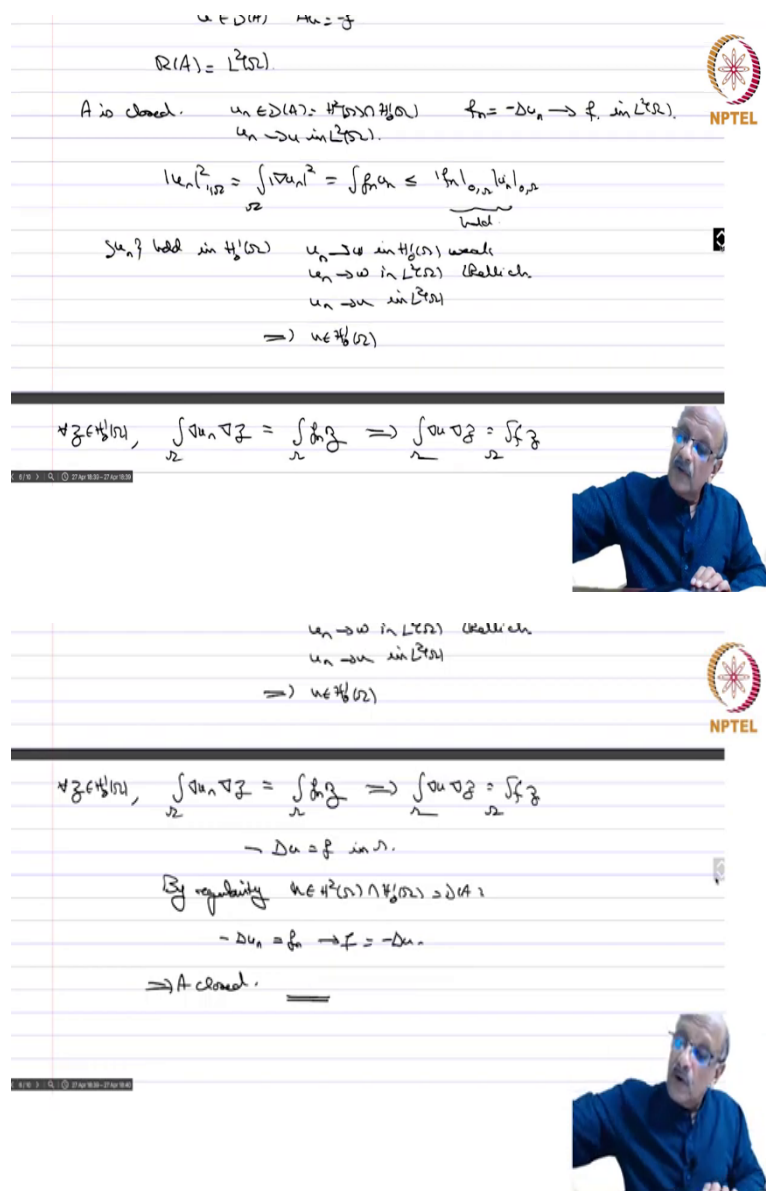 u ∈ D(A) Au = f
R(A) = L²(Ω).
A is closed. uₙ ∈ D(A) = H²(Ω) ∩ H₀¹(Ω) fₙ = -Δuₙ → f. in L²(Ω).
uₙ → u in L²(Ω).
NPTEL
|uₙ|²₁,Ω = ∫_Ω |∇uₙ|² = ∫ fₙ uₙ ≤ |fₙ|₀,Ω |uₙ|₀,Ω
bdd.
{uₙ} bdd in H₀¹(Ω) uₙ ⇀ w in H₀¹(Ω) weak
uₙ → w in L²(Ω) (Rellich
uₙ → u in L²(Ω)
⇒ u ∈ H₀¹(Ω)
∀ z ∈ H₀¹(Ω), ∫_Ω ∇uₙ ∇z = ∫_Ω fₙ z ⇒ ∫_Ω ∇u ∇z = ∫_Ω f z
6/10 27 Apr 18:30 - 27 Apr 18:39
uₙ → w in L²(Ω) (Rellich
uₙ → u in L²(Ω)
⇒ u ∈ H₀¹(Ω)
NPTEL
∀ z ∈ H₀¹(Ω), ∫_Ω ∇uₙ ∇z = ∫_Ω fₙ z ⇒ ∫_Ω ∇u ∇z = ∫_Ω f z
- Δu = f in Ω.
By regularity u ∈ H²(Ω) ∩ H₀¹(Ω) = D(A).
- Δuₙ = fₙ → f = -Δu.
⇒ A closed.
6/10 27 Apr 18:30 - 27 Apr 18:40